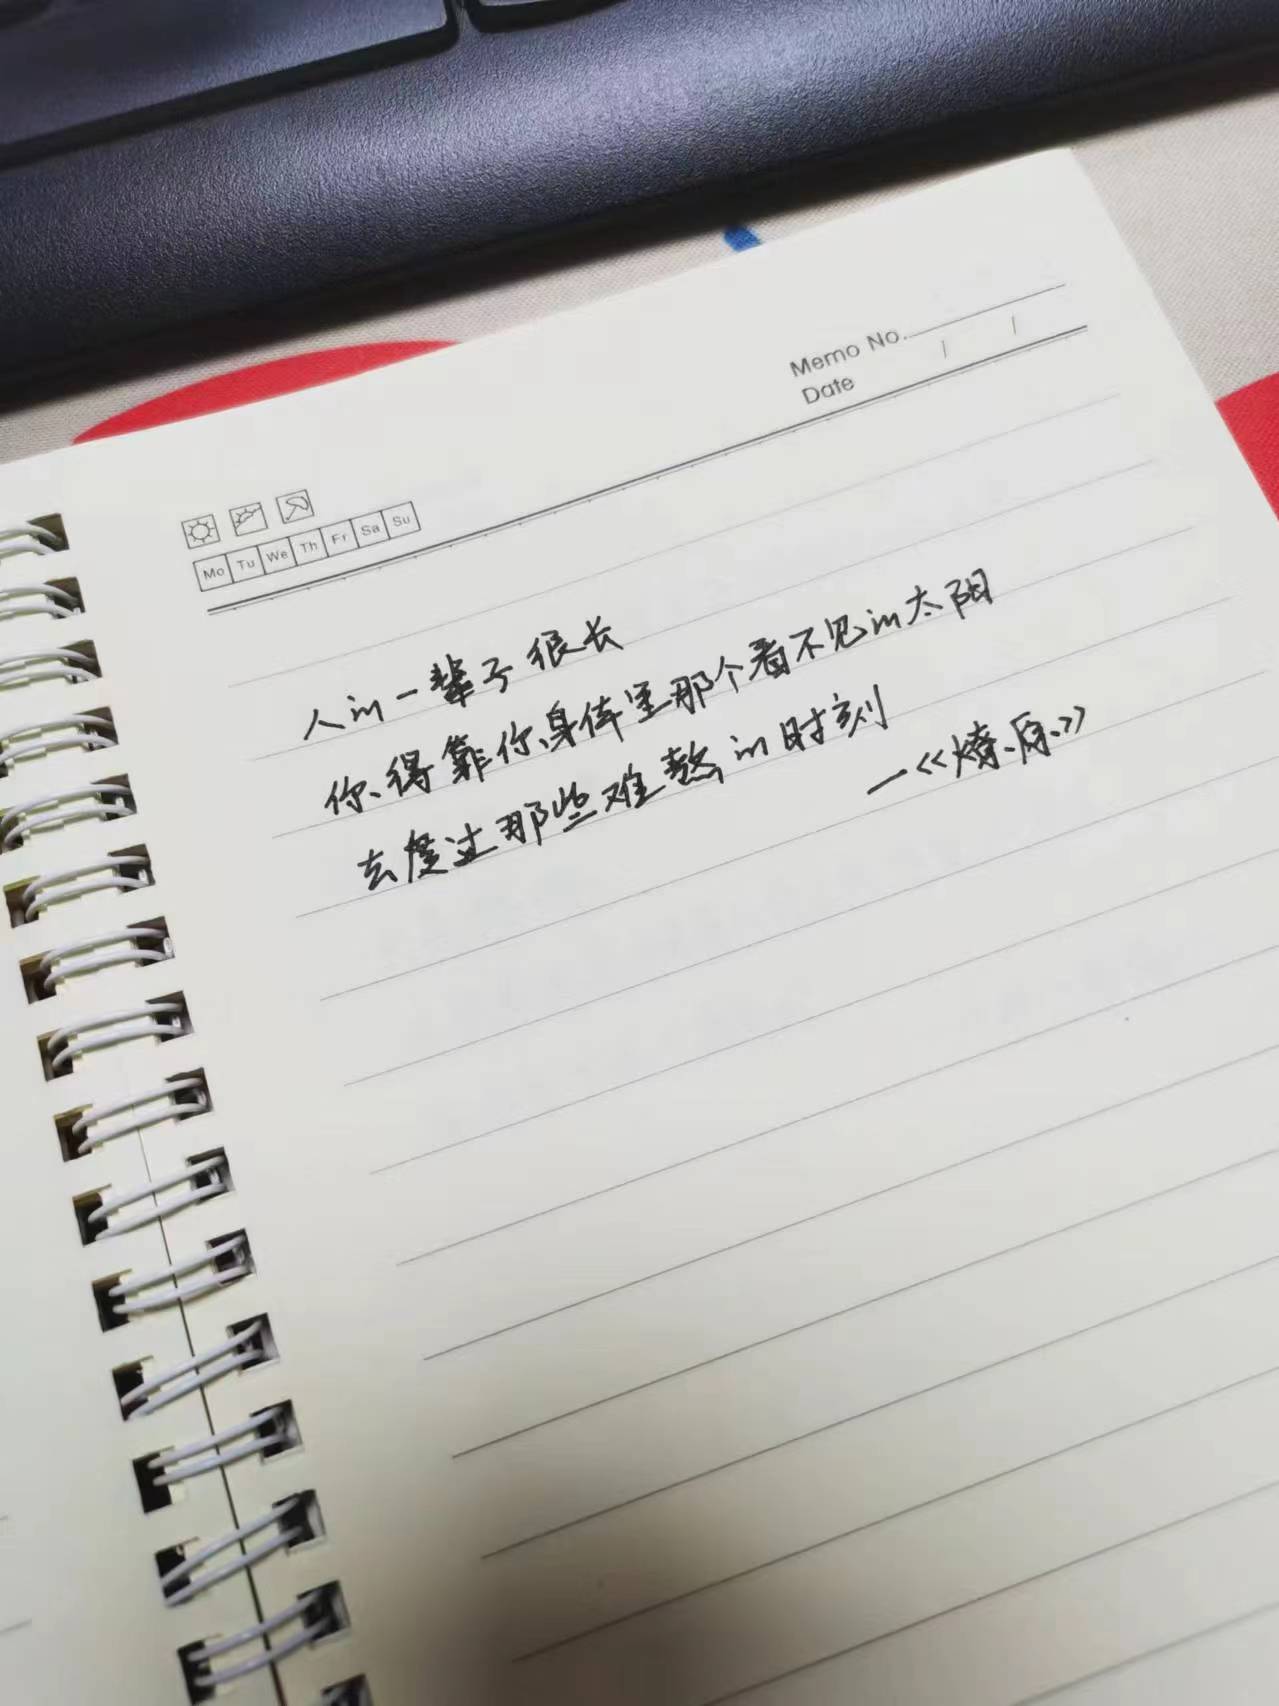 Memo No.
Date / /
Mo Tu We Th Fr Sa Su
人的一辈子很长
你得靠你身体里那个看不见的太阳
去度过那些难熬的时刻
—《燎原》